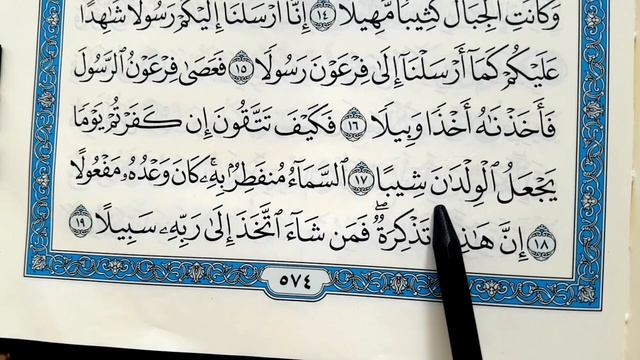 وَكَانَتِ ٱلْجِبَالُ كَثِيبًا مَّهِيلًا ١٤ إِنَّآ أَرْسَلْنَآ إِلَيْكُمْ رَسُولًا شَٰهِدًا
عَلَيْكُمْ كَمَآ أَرْسَلْنَآ إِلَىٰ فِرْعَوْنَ رَسُولًا ١٥ فَعَصَىٰ فِرْعَوْنُ ٱلرَّسُولَ
فَأَخَذْنَٰهُ أَخْذًا وَبِيلًا ١٦ فَكَيْفَ تَتَّقُونَ إِن كَفَرْتُمْ يَوْمًا
يَجْعَلُ ٱلْوِلْدَٰنَ شِيبًا ١٧ ٱلسَّمَآءُ مُنفَطِرٌۢ بِهِۦۚ كَانَ وَعْدُهُۥ مَفْعُولًا
١٨ إِنَّ هَٰذِهِۦ تَذْكِرَةٌۖ فَمَن شَآءَ ٱتَّخَذَ إِلَىٰ رَبِّهِۦ سَبِيلًا ١٩
٥٧٤